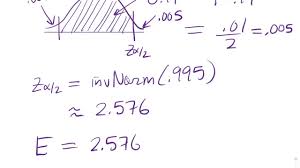 .005
zα/2
= .01/2 = .005
zα/2 = invNorm(.995)
≈ 2.576
E = 2.576